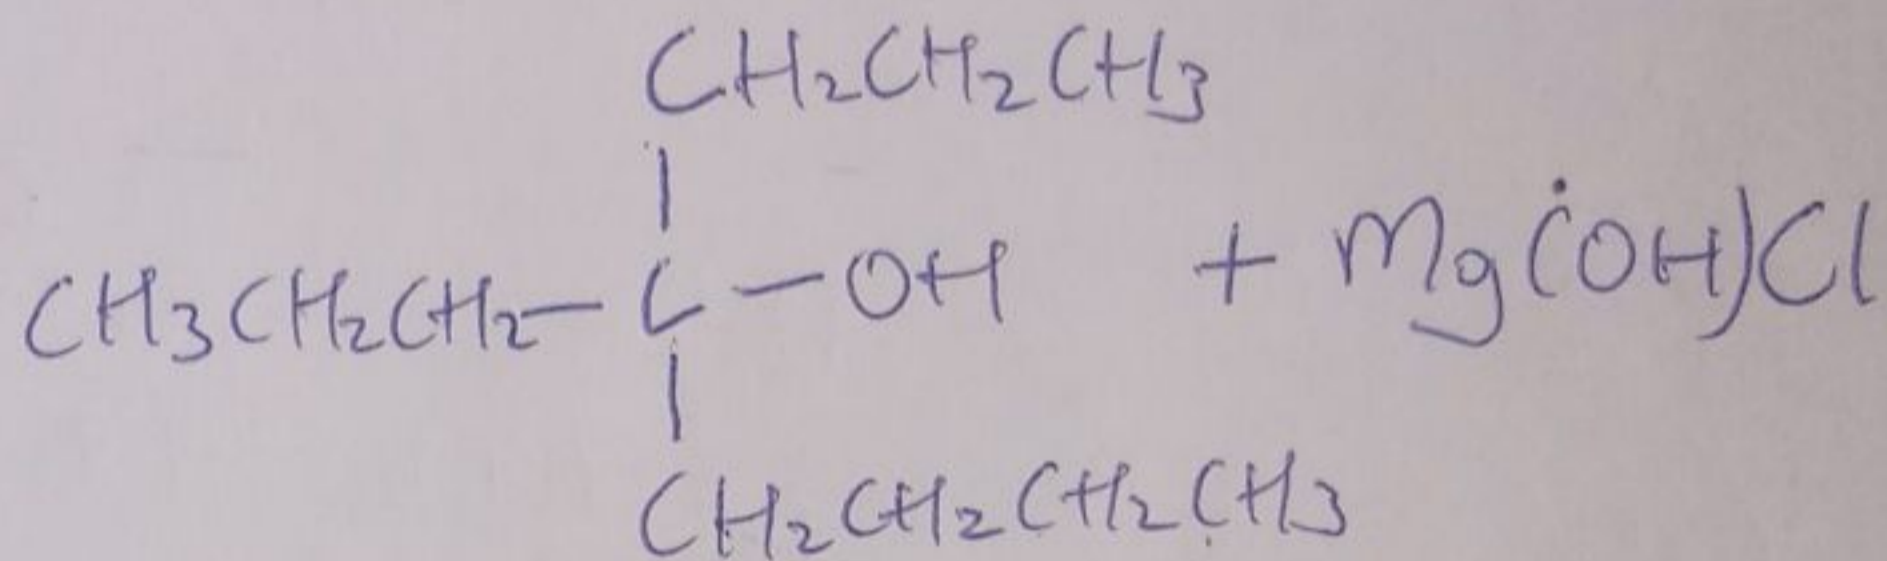 CH₂CH₂CH₃
|
CH₃CH₂CH₂—C—OH + Mg(OH)Cl
|
CH₂CH₂CH₂CH₃